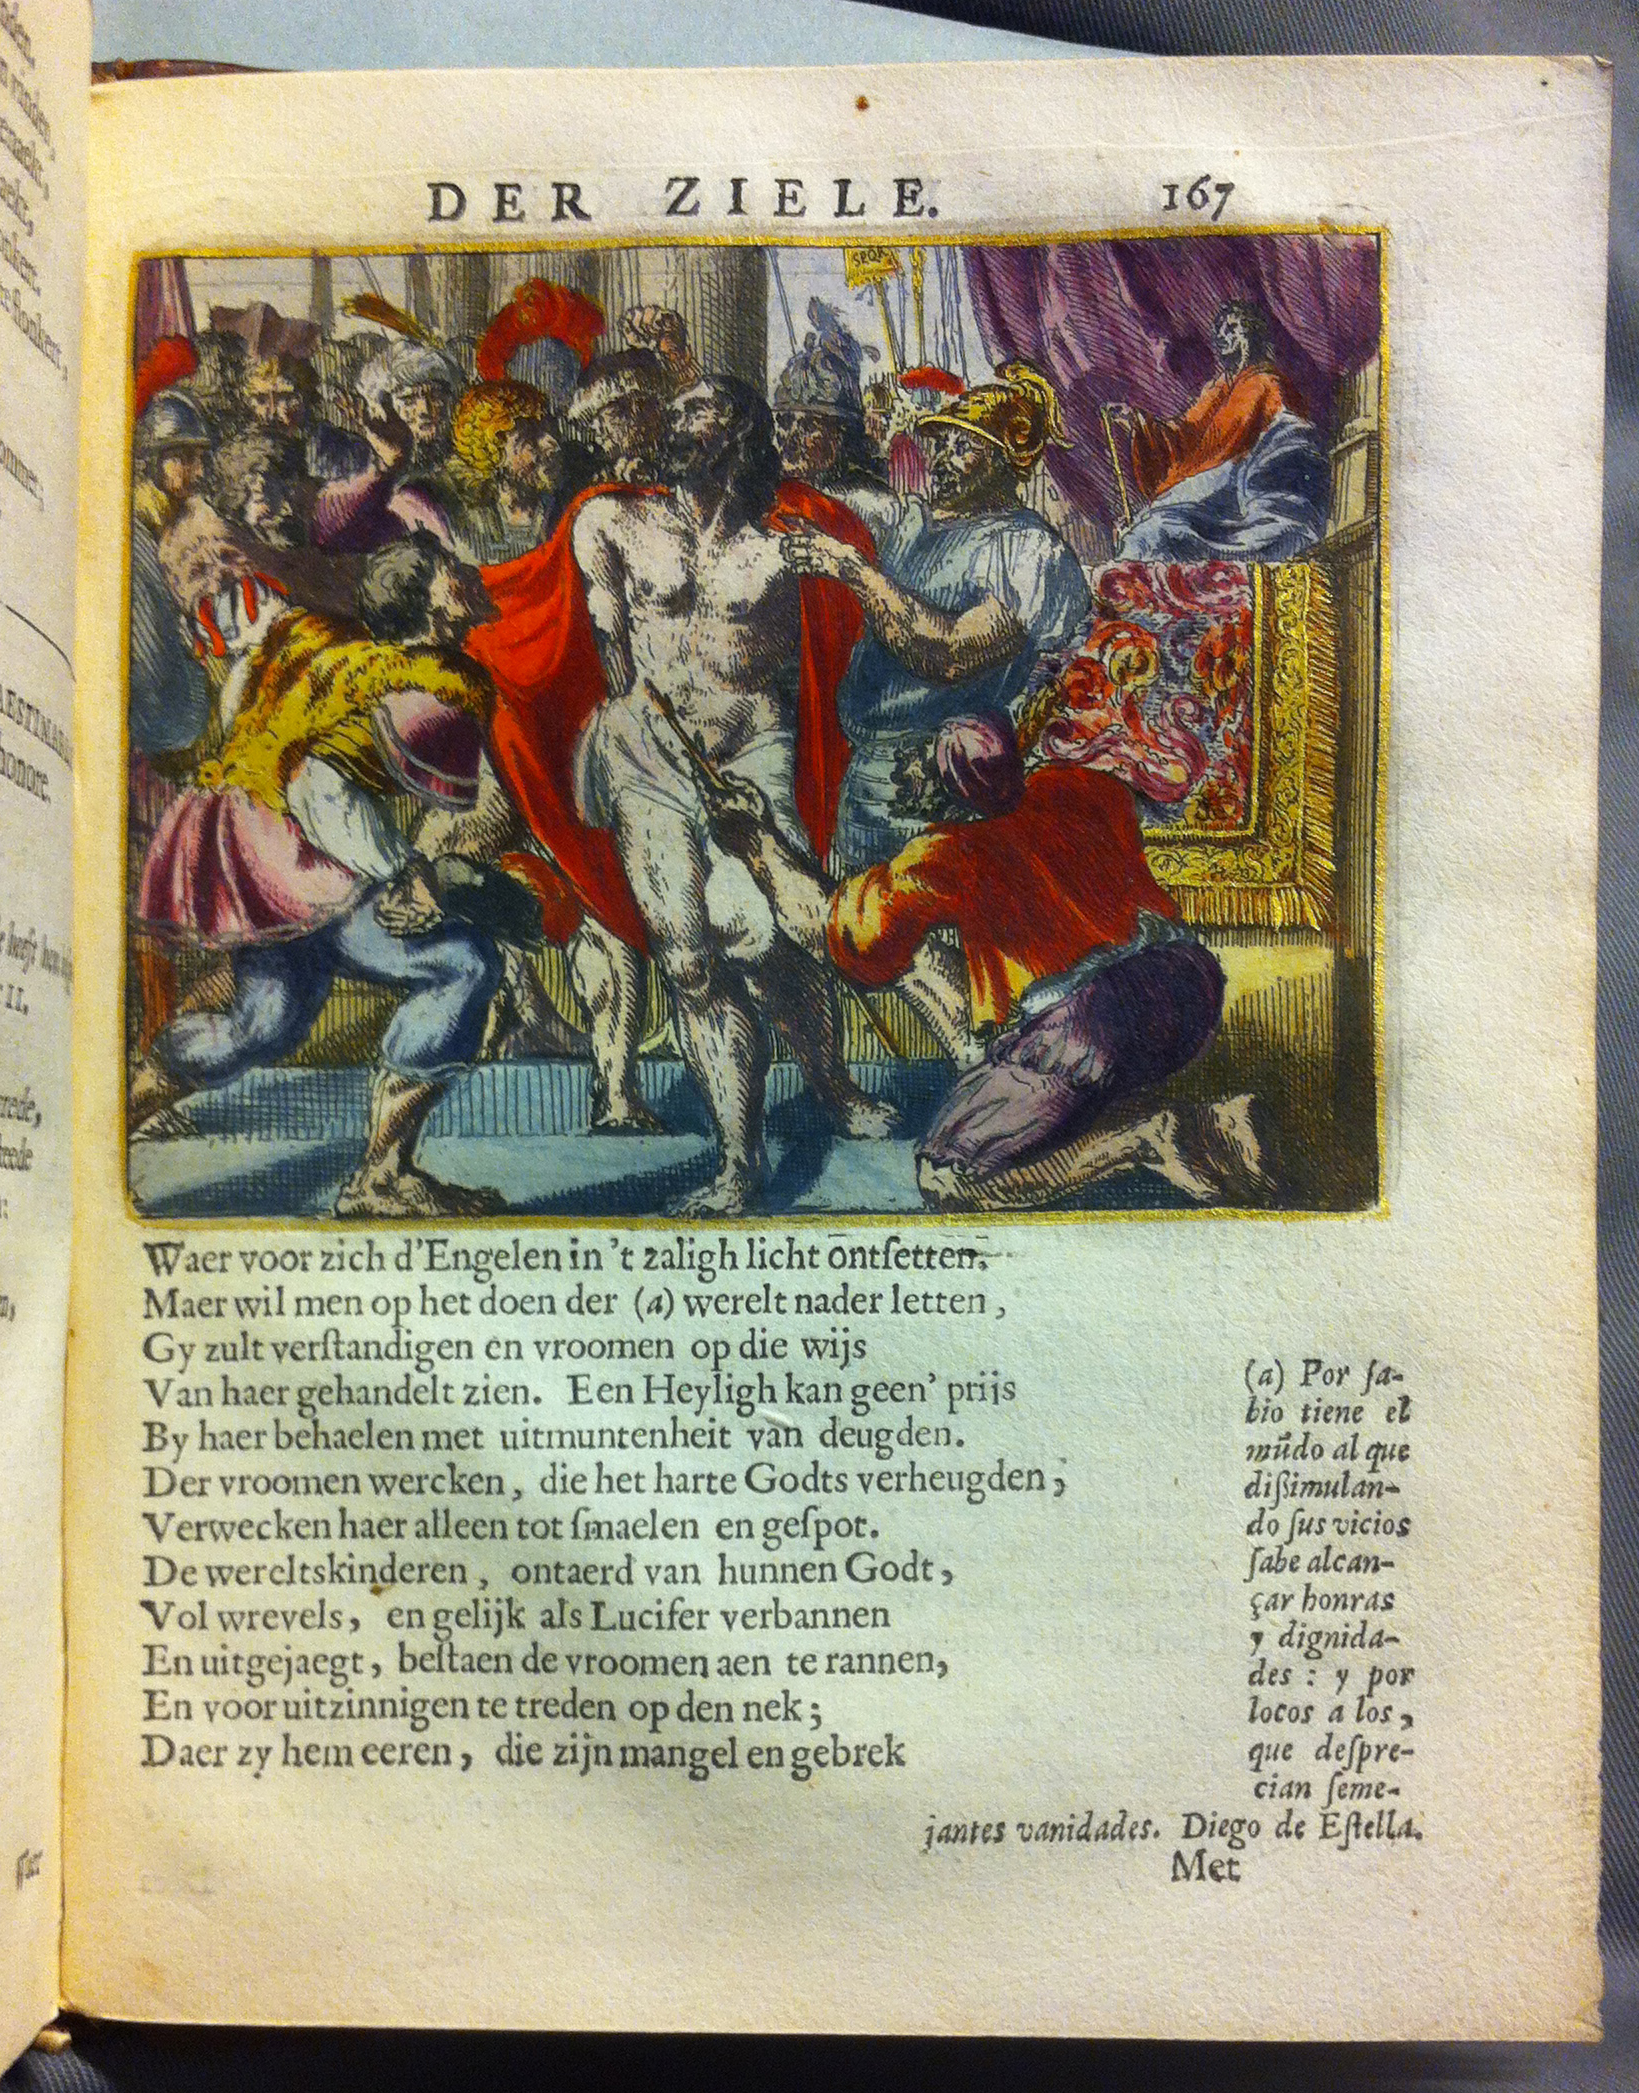 DER ZIELE. 167
SPQR
Waer voor zich d'Engelen in 't zaligh licht ontſetten.
Maer wil men op het doen der (a) werelt nader letten,
Gy zult verſtandigen en vroomen op die wijs
Van haer gehandelt zien. Een Heyligh kan geen' prijs
By haer behaelen met uitmuntenheit van deugden.
Der vroomen wercken, die het harte Godts verheugden,
Verwecken haer alleen tot ſmaelen en geſpot.
De wereltskinderen, ontaerd van hunnen Godt,
Vol wrevels, en gelijk als Lucifer verbannen
En uitgejaegt, beſtaen de vroomen aen te rannen,
En voor uitzinnigen te treden op den nek;
Daer zy hem eeren, die zijn mangel en gebrek
(a) Por ſa-
bio tiene el
mũdo al que
dißimulan-
do ſus vicios
ſabe alcan-
çar honras
y dignida-
des: y por
locos a los,
que deſpre-
cian ſeme-
jantes vanidades. Diego de Eſtella.
Met
AESTIMARU
honore.
II.